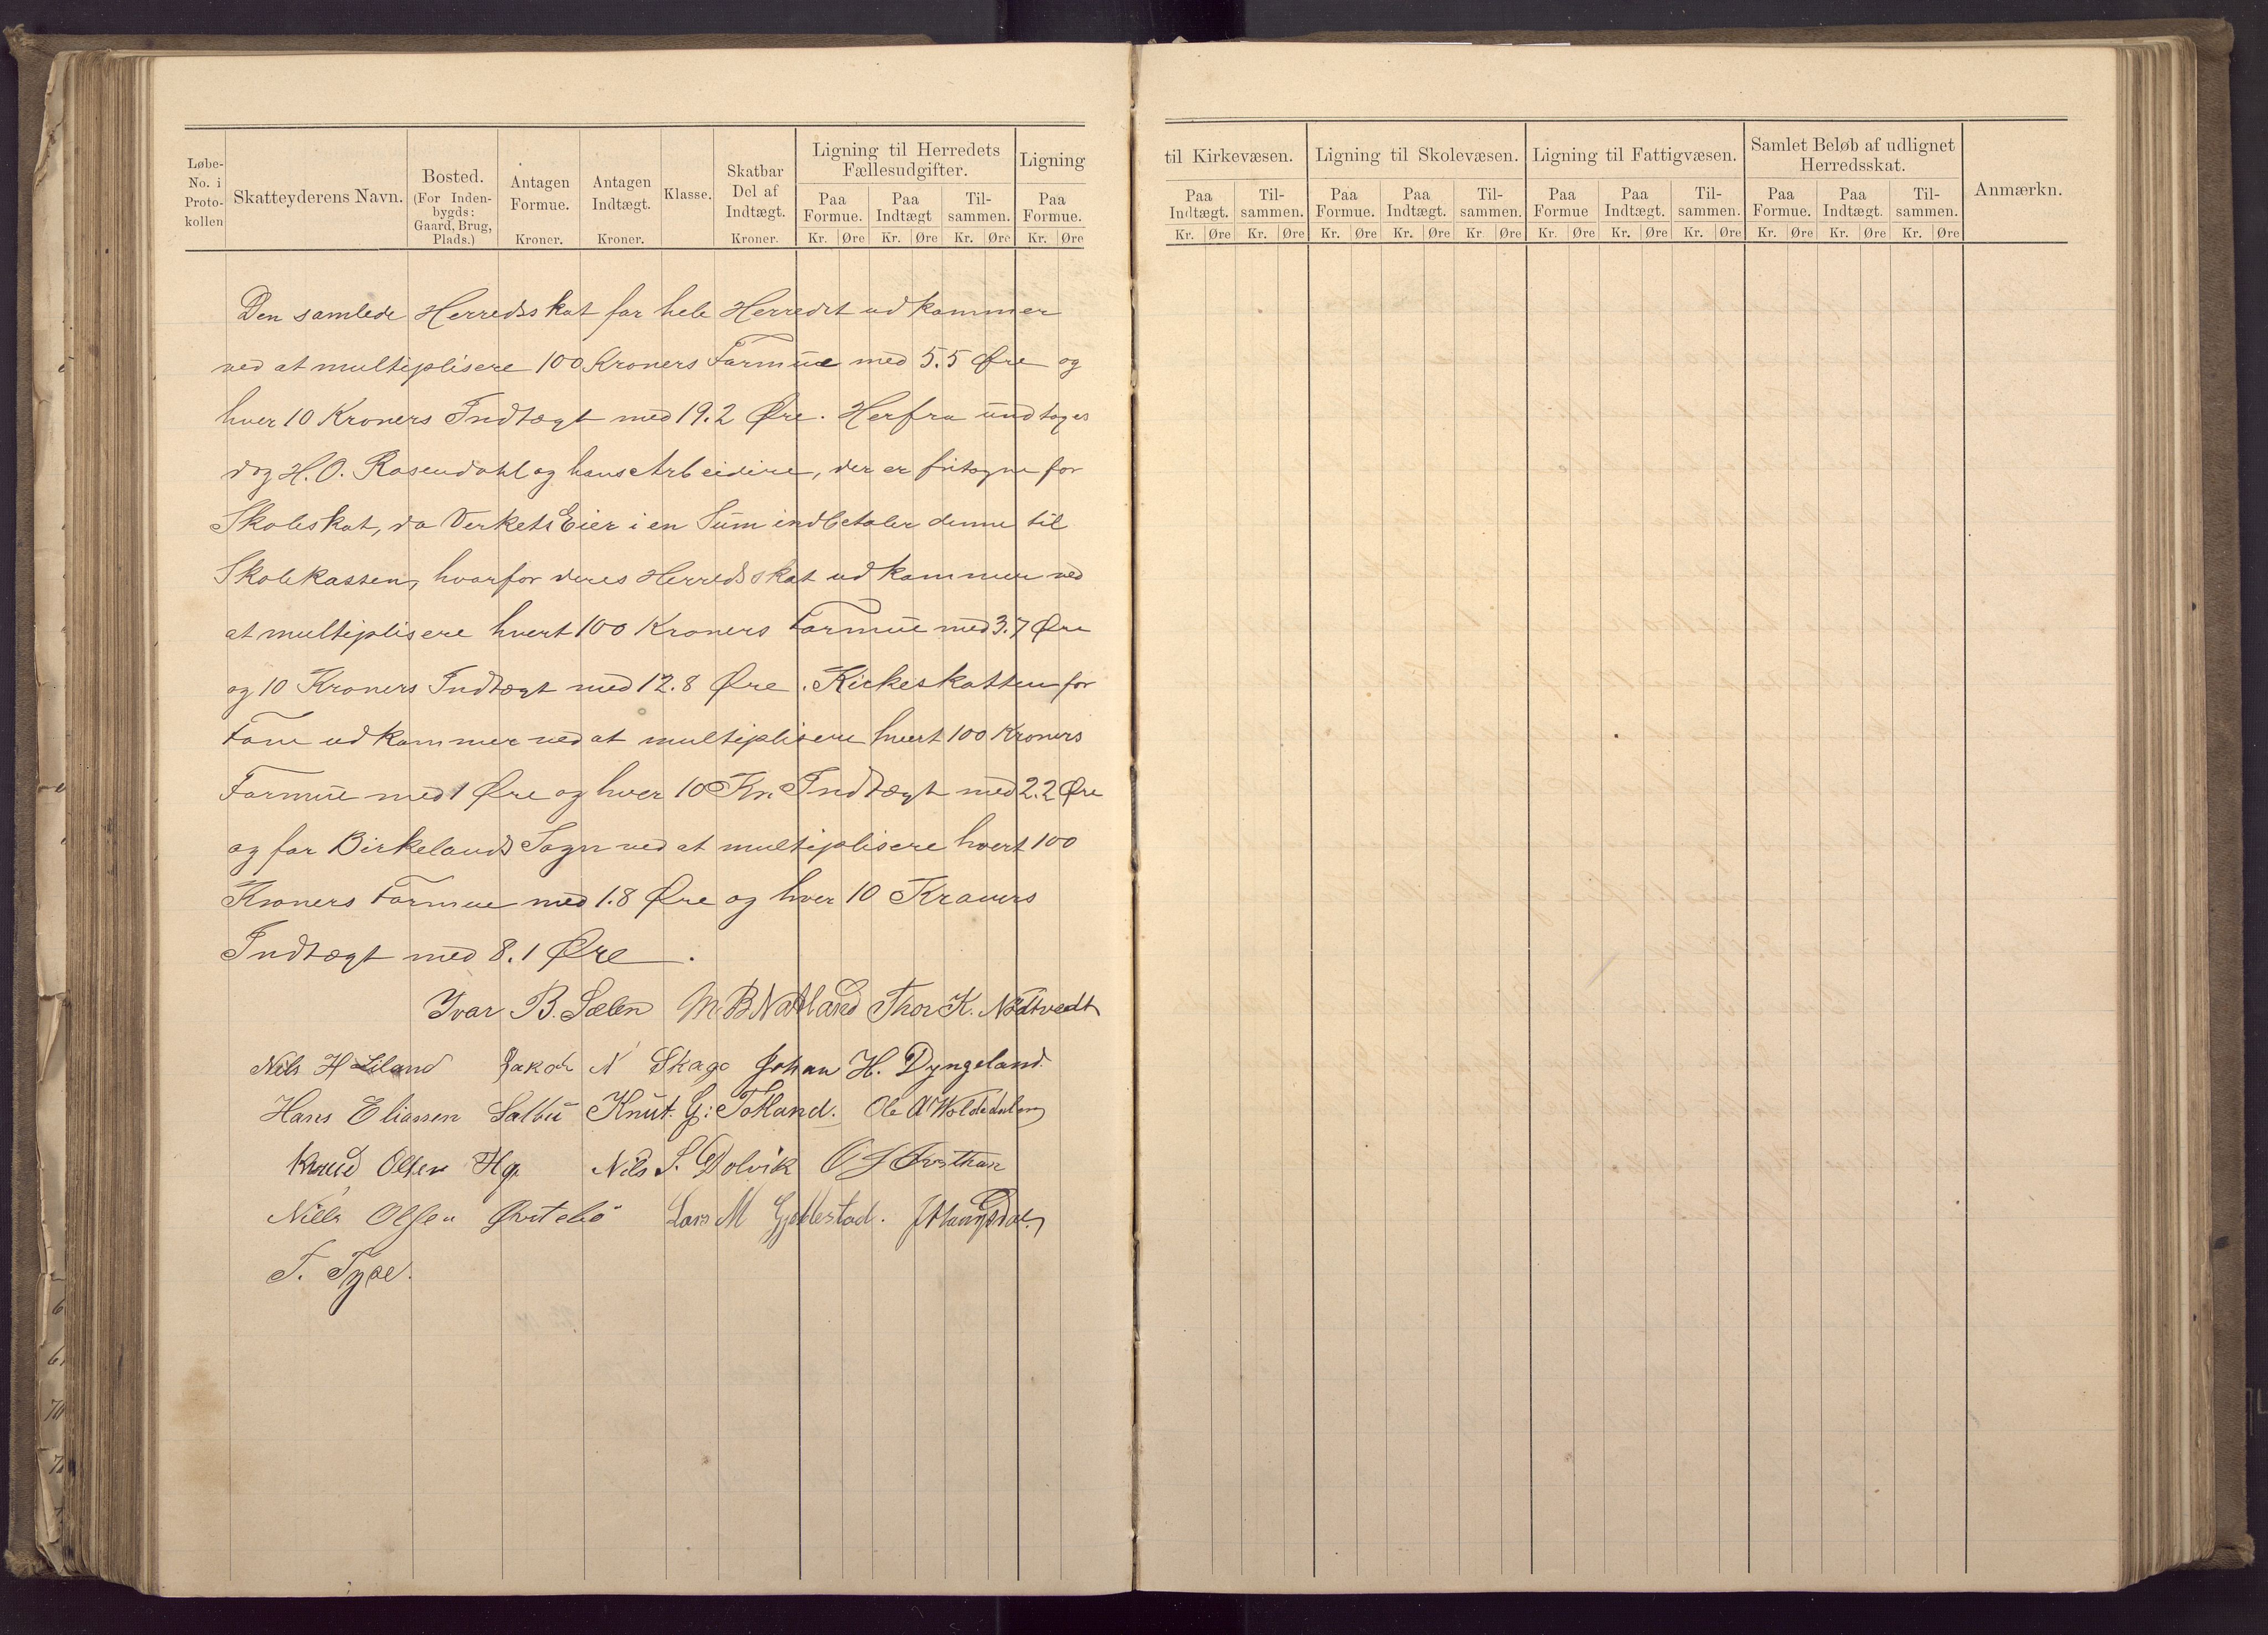 Løbe-No. i Proto-kollen
Skatteyderens Navn.
Bosted. (For Inden-bygds: Gaard, Brug, Plads.)
Antagen Formue. Kroner.
Antagen Indtægt. Kroner.
Klasse.
Skatbar Del af Indtægt. Kroner.
Ligning til Herredets Fællesudgifter.
Paa Formue. Paa Indtægt Til-sammen.
Kr. Øre Kr. Øre Kr. Øre
Ligning
Paa Formue.
Kr. Øre
Den samlede Herredsskat for hele Herredet udkommer
ved at multiplisere 100 Kroners Formue med 5.5 Øre og
hver 10 Kroners Indtægt med 19.2 Øre. Herfra undtages
dog H. O. Rosendahl og hans Arbeidere, der er fritagne for
Skoleskat, da Verkets Eier i en Sum indbetaler denne til
Skolekassen, hvorfor deres Herredsskat udkommer ved
at multiplisere hvert 100 Kroners Formue med 3.7 Øre
og 10 Kroners Indtægt med 12.8 Øre. Kirkeskatten for
Fane udkommer ved at multiplisere hvert 100 Kroners
Formue med 1 Øre og hver 10 Kr. Indtægt med 2.2 Øre
og for Birkelands Sogn ved at multiplisere hvert 100
Kroners Formue med 1.8 Øre og hver 10 Kroners
Indtægt med 8.1 Øre.
Ivar B. Sælen M. B. Natland Thor K. Nødtvedt
Nils H Liland Jakob N Skage Johan H. Dyngeland.
Hans Eliassen Salbu Knut. G: Totland. Ole A
Knud Olsen Hp. Nils S. Dolvik O
Nills Olsen Øvstebö Lars M Gjellestad.
T. Tyse.
til Kirkevæsen.
Paa Indtægt. Til-sammen.
Kr. Øre Kr. Øre
Ligning til Skolevæsen.
Paa Formue. Paa Indtægt. Til-sammen.
Kr. Øre Kr. Øre Kr Øre
Ligning til Fattigvæsen.
Paa Formue Paa Indtægt. Til-sammen.
Kr. Øre Kr. Øre Kr. Øre
Samlet Beløb af udlignet Herredsskat.
Paa Formue. Paa Indtægt. Til-sammen.
Kr. Øre Kr. Øre Kr. Øre
Anmærkn.